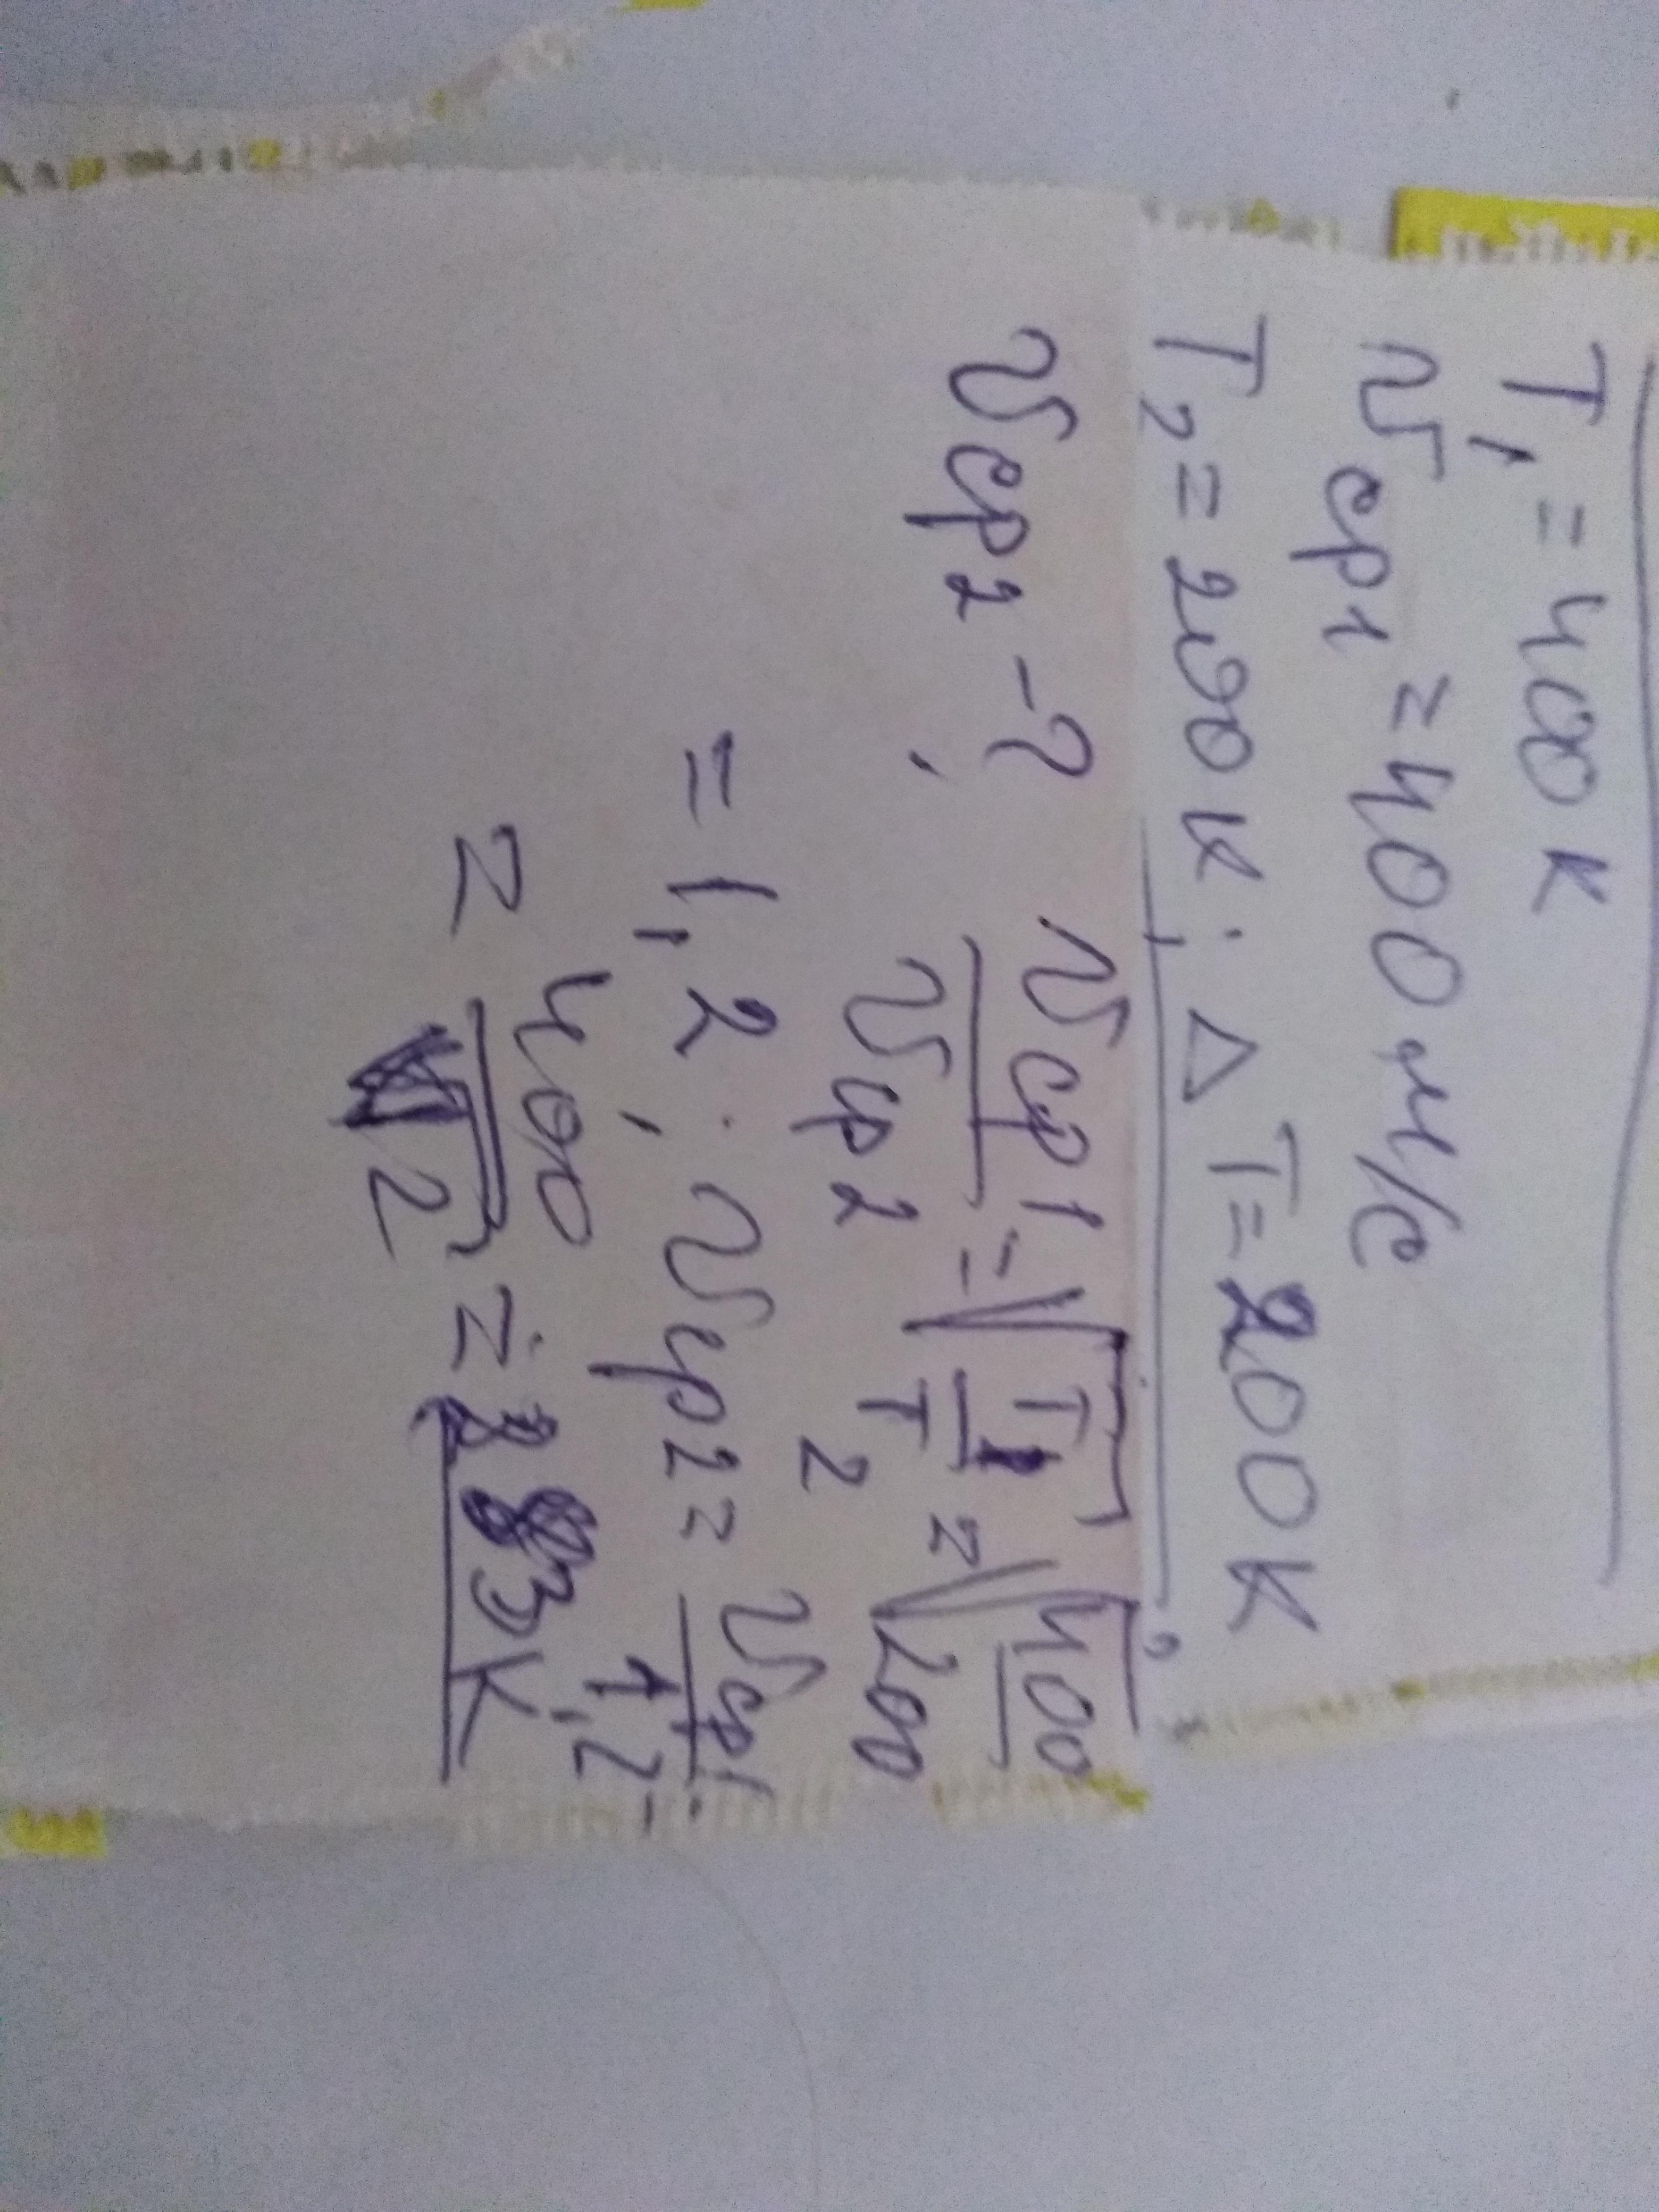 T₁ = 400 К
υср1 = 400 м/с
T₂ = 200 К; Δ T = 200 К
υср2 - ?, υср1/υср2 = √T₁/T₂ = √400/200
= 1,2; υср2 = υср1/1,2 =
= 400/√2 = 283 К